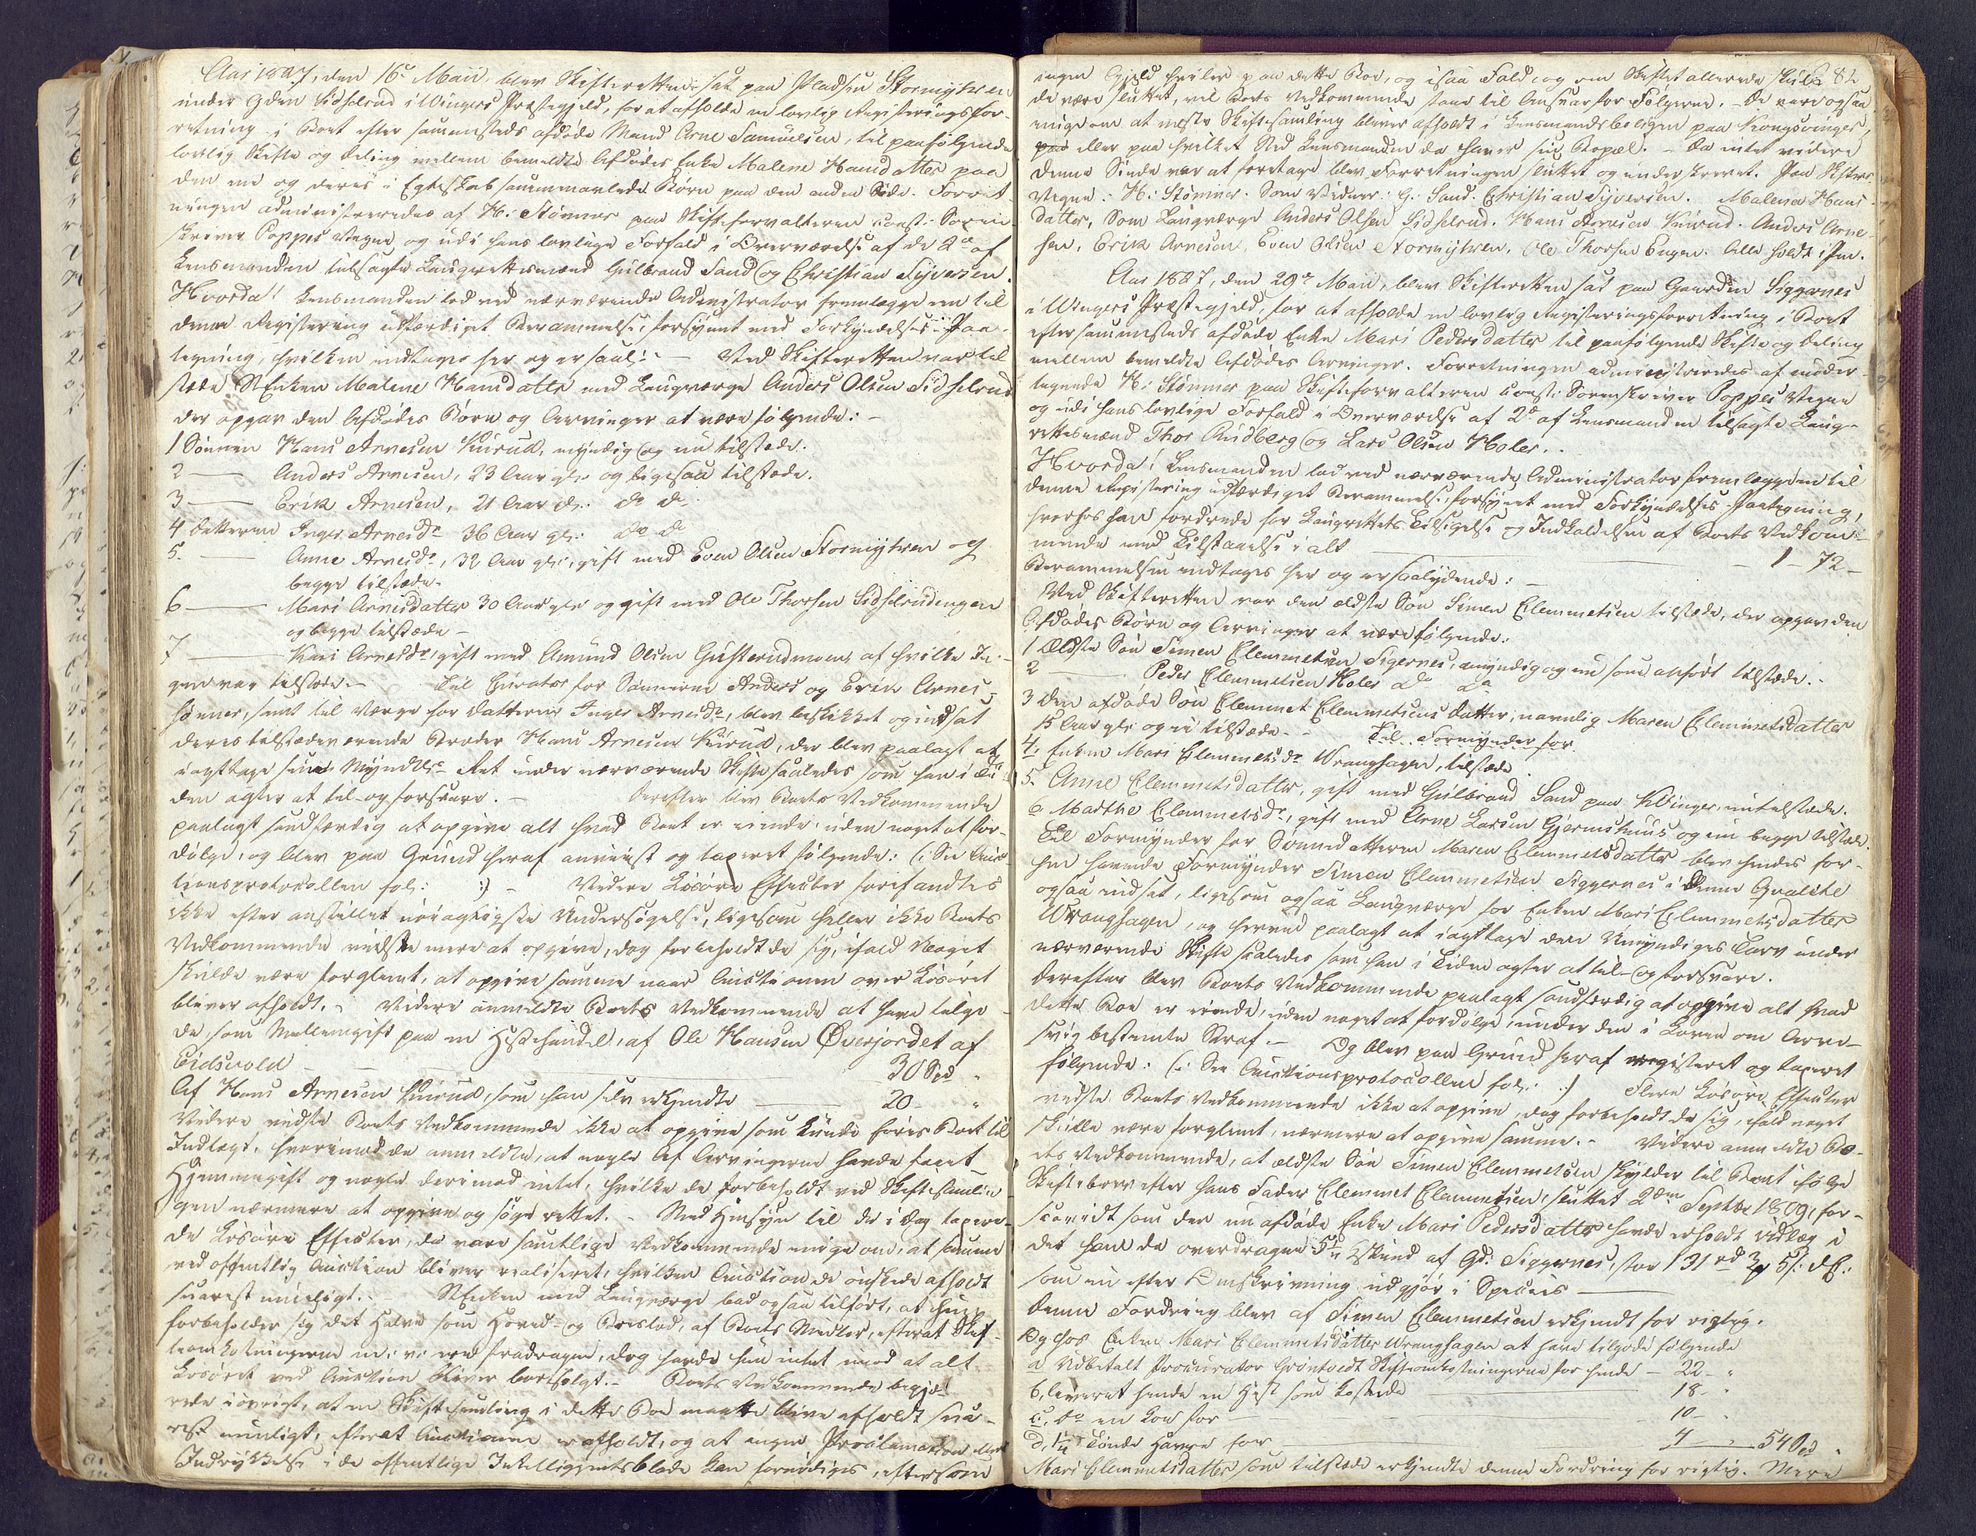 Aar 1827, den 16de Maii, blev Skifteretten sat paa Pladsen Stormyhren
under Gden Sidselrud i Wingers Præstegjeld, for at afholde en lovlig Registeringsfor-
retning i Boet efter sammesteds afdøde Mand Arne Samuelsen, til paafølgende
lovlig Skifte og Deling mellem bemeldte Afdødes Enke Malene Hansdatter paa
den ene og deres i Egteskab sammenavlede Børn paa den anden Side. Forret-
ningen administreredes af H. Stømner paa Skifteforvalteren const. Soren
skriver Poppes Vegne og udi hans lovlige Forfald i Overværelse af de 2de af
Lensmanden tilsagte Laugrettesmænd Gulbrand Sand og Christian Syversen.
Hvorda! Lensmanden lod ved nærværende Administrator fremlægge en til
denne Registering udfærdiget Berammelse, forsynet med Forkyndelses-Paa-
tegning, hvilken indtages her og er saal: — Ved Skifteretten var til
stæde Enken Malene Hansdatter med Laugværge Anders Olsen Sidselrud
der opgav den Afdødes Børn og Arvinger at være følgende: —
1 Sønnen Hans Arnesen Kurud, myndig og nu tilstæde.
2 — Anders Arnesen, 23 Aar gl: og ligesaa tilstæde.
3 — Erik Arnesen, 21 Aar gl: do do
4 Datteren Inger Arnesdr 36 Aar gl: do do
5. — Anne Arnesdr, 32 Aar gl:, gift med Even Olsen Stormyhren og
begge tilstæde.
6 — Mari Arnesdatter 30 Aar gl: og gift med Ole Thorsen Sidselrudengen
og begge tilstæde —
7 — Kari Arnesdr, gift med Amund Olsen Gusterudmoen, af hvilke In-
gen var tilstæde. — Til Curator for Sønnerne Anders og Erik Arnes-
sønner, samt til Værge for Datteren Inger Arnesdr, blev beskikket og indsat
deres tilstædeværende Broder Hans Arnesen Kurud, der blev paalagt at
iagttage sine Myndl: Ret under nærværende Skifte saaledes som han i Ti-
den agter at til- og forsvare. — Derefter blev Boets Vedkommende
paalagt sandfærdig at opgive alt hvad Boet er eiende, uden noget at for-
dølge, og blev paa Grund heraf anviist og taxeret følgende: (: See Auc-
tionsprotocollen fol: :) — Videre Løsøre Effecter forefandtes
ikke efter anstillet nøiagtigste Undersøgelse, ligesom heller ikke Boets
Vedkommende vidste mere at opgive, dog forbeholdt de sig, ifald Noget
skulde være forglemt, at opgive samme naar Auctionen over Løsøret
bliver afholdt. — Videre anmeldte Boets Vedkommende at have tilgo-
de som Mellemgift paa en Hestehandel, af Ole Hansen Øverjordet af
Eidsvold — 30 Spd "
Af Hans Arnesen Kurud, som han selv erkjendte — 20 — "
Videre vidste Boets Vedkommende ikke at opgive som kunde føres Boet til
Indtægt, hvorimod de anmeldte, at nogle af Arvingerne havde faaet
Hjemmegift og nogle derimod intet, hvilke de forbeholdt ved Skiftesamlin-
gen nærmere at opgive og søge rettet. — Med Hensyn til de i Dag taxere-
de Løsøre Effecter, da vare samtlige Vedkommende enige om, at samme
ved offentlig Auction bliver realiseret, hvilken Auction de ønskede afholdt
snarest mueligt. — Enken med Laugværge bad ogsaa tilført, at hun
forbeholder sig det Halve som Hoved- og Broslod, af Boets Midler, efterat Skif-
teomkostningerne m: v: ere fradragen, dog havde hun intet imod at alt
Løsøret ved Auction bliver bortsolgt. — Boets Vedkommende begjæ-
rede iøvrigt, at en Skiftesamling i dette Boe maatte blive afholdt sna-
rest mueligt, efterat Auctionen er afholdt, og at ingen Proclamation eller
Indrykkelse i de offentlige Intelligentsblade kan fornødiges, eftersom
82
ingen Gjæld hviler paa dette Boe, og i saa Fald og om Skiftet allerede skulde
de være sluttet, vil Boets Vedkommende staae til Ansvar for Følgerne. — De vare ogsaa
enige om at næste Skiftesamling bliver afholdt i Lensmandsboeligen paa Kongsvinger,
eller paa hvilket Sted Lensmanden da haver sin Bopæl. — Da intet videre
denne Sinde var at foretage blev Forretningen sluttet og underskrevet. Paa Skifterettens
Vegne. H: Stømner. Som Vidner: G: Sand. Christian Syversen. Malena Hans-
datter, Som Laugværge Anders Olsen Sidselrud. Hans Arnesen Kurud. Anders Arne-
sen, Erik Arnesen, Even Olsen Stormyhren, Ole Thorsen Engen. Alle holdt i Pen.
Aar 1827, den 29de Maii, blev Skifteretten sat paa Gaarden Siggernes
i Wingers Præstegjeld, for at afholde en lovlig Registeringsforretning i Boet
efter sammesteds afdøde Enke Mari Pedersdatter til paafølgende Skifte og Deling
mellem bemeldte Afdødes Arvinger. Forretningen administreredes af under-
tegnede H: Stømner paa Skifteforvalteren const: Sorenskriver Poppes Vegne
og udi hans lovlige Forfald i Overværelse af 2de af Lensmanden tilsagte Laug-
rettesmænd Thor Rudberg og Lars Olsen Holer.
Hvorda! Lensmanden lod ved nærværende Administrator fremlægge en til
denne Registering udfærdiget Berammelse, forsynet med Forkyndelses-Paategning,
hvorhos han fordrede for Laugrettets Tilsigelse og Indkaldelsen af Boets Vedkom-
mende med Tilstaaelse i alt — 1 — 72 —
Berammelsen indtages her og er saalydende: —
Ved Skifteretten var den ældste Søn Simen Clemmetsen tilstæde, der opgav den
Afdødes Børn og Arvinger at være følgende:
1 Ældste Søn Simen Clemmetsen Sigernes, myndig og nu som anført tilstæde. —
2 — Peder Clemmetsen Holer do do
3 den afdøde Søn Clemmet Clemmetsens Datter, navnlig Maren Clemmetsdatter
15 Aar gl: og ei tilstæde. — Til Formynder for
4, Enken Mari Clemmetsdr Wranghagen, tilstæde.
5. Anne Clemmetsdatter, gift med Gulbrand Sand paa Kongsvinger, ei tilstæde.
6 Marthe Clemmetsdr, gift med Arne Larsen Gjermshuus og ei begge tilstæde.
Til Formynder for Sønnedatteren Maren Clemmetsdatter blev hendes for-
hen havende Formynder Simen Clemmetsen Siggernes i denne Qvalité
ogsaa indsat, ligesom ogsaa Laugværge for Enken Mari Clemmetsdatter
Wranghagen, og herved paalagt at iagttage den Umyndiges Tarv under
nærværende Skifte saaledes som han i Tiden agter at til- og forsvare.
Derefter blev Boets Vedkommende paalagt sandfærdig at opgive alt hvad
dette Boe er eiende, uden noget at fordølge, under den i Loven om Arve-
svig bestemte Straf. — Og blev paa Grund heraf registeret og taxeret
følgende: (: See Auctionsprotocollen fol: :) Flere Løsøre Effecter
vidste Boets Vedkommende ikke at opgive, dog forbeholdt de sig, ifald noget
skulle være forglemt, nærmere at opgive samme. — Videre anmeldte Bo-
ets Vedkommende, at ældste Søn Simen Clemmetsen skylder til Boet ifølge
Skiftebrev efter hans Fader Clemmet Clemmetsen, sluttet 2den Septbr 1809, for-
saavidt som den nu afdøde Enke Mari Pedersdatter havde erholdt Udlæg i
det ham da overdragne Skind af Gd: Siggernes, stor 131 rd 3 5 s: d.C.:
som nu efter Omskrivning udgjør i Species —
Denne Fordring blev af Simen Clemmetsen erkjendt for rigtig.
Og hos Enken Mari Clemmetsdatter Wranghagen at have tilgode følgende
a Udbetalt Procurator Grøntoedt Skifteomkostningerne for hende — 22 — "
b, leveret hende en Hest som kostede — 18 — "
c, do en Koe for — 10 — "
d, 1¼ Tønde Havre for — 4 — " — 54 Spd "
Mari Clemmetsdatter som tilstæde erkjendte denne Fordring for rigtig. Mere